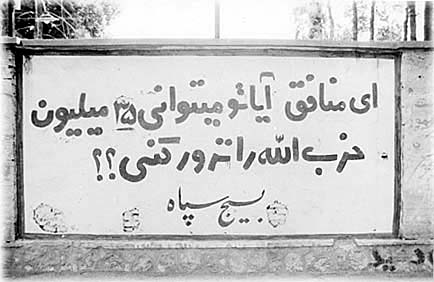 ای منافق آیا تو میتوانی ۳۵ میلیون
حزب الله را ترور کنی؟؟
بسیج سپاه